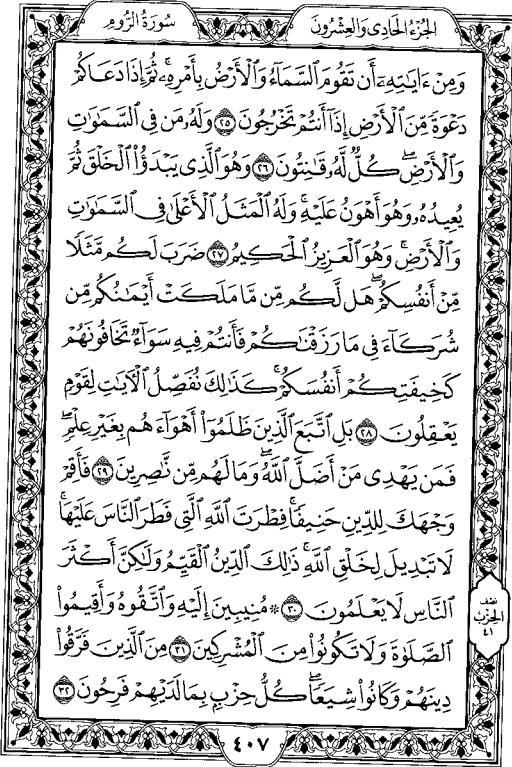 سُورَةُ الرُّومِ
الجُزْءُ الحَادِي وَالعِشْرُونَ
وَمِنْ ءَايَٰتِهِۦٓ أَن تَقُومَ ٱلسَّمَآءُ وَٱلْأَرْضُ بِأَمْرِهِۦۚ ثُمَّ إِذَا دَعَاكُمْ
دَعْوَةً مِّنَ ٱلْأَرْضِ إِذَآ أَنتُمْ تَخْرُجُونَ ٢٥ وَلَهُۥ مَن فِى ٱلسَّمَٰوَٰتِ
وَٱلْأَرْضِۖ كُلٌّ لَّهُۥ قَٰنِتُونَ ٢٦ وَهُوَ ٱلَّذِى يَبْدَؤُا۟ ٱلْخَلْقَ ثُمَّ
يُعِيدُهُۥ وَهُوَ أَهْوَنُ عَلَيْهِۚ وَلَهُ ٱلْمَثَلُ ٱلْأَعْلَىٰ فِى ٱلسَّمَٰوَٰتِ
وَٱلْأَرْضِۚ وَهُوَ ٱلْعَزِيزُ ٱلْحَكِيمُ ٢٧ ضَرَبَ لَكُم مَّثَلًا
مِّنْ أَنفُسِكُمْۖ هَل لَّكُم مِّن مَّا مَلَكَتْ أَيْمَٰنُكُم مِّن
شُرَكَآءَ فِى مَا رَزَقْنَٰكُمْ فَأَنتُمْ فِيهِ سَوَآءٌ تَخَافُونَهُمْ
كَخِيفَتِكُمْ أَنفُسَكُمْۚ كَذَٰلِكَ نُفَصِّلُ ٱلْءَايَٰتِ لِقَوْمٍ
يَعْقِلُونَ ٢٨ بَلِ ٱتَّبَعَ ٱلَّذِينَ ظَلَمُوٓا۟ أَهْوَآءَهُم بِغَيْرِ عِلْمٍۖ
فَمَن يَهْدِى مَنْ أَضَلَّ ٱللَّهُۖ وَمَا لَهُم مِّن نَّٰصِرِينَ ٢٩ فَأَقِمْ
وَجْهَكَ لِلدِّينِ حَنِيفًاۚ فِطْرَتَ ٱللَّهِ ٱلَّتِى فَطَرَ ٱلنَّاسَ عَلَيْهَاۚ
لَا تَبْدِيلَ لِخَلْقِ ٱللَّهِۚ ذَٰلِكَ ٱلدِّينُ ٱلْقَيِّمُ وَلَٰكِنَّ أَكْثَرَ
ٱلنَّاسِ لَا يَعْلَمُونَ ٣٠ * مُنِيبِينَ إِلَيْهِ وَٱتَّقُوهُ وَأَقِيمُوا۟
ٱلصَّلَوٰةَ وَلَا تَكُونُوا۟ مِنَ ٱلْمُشْرِكِينَ ٣١ مِنَ ٱلَّذِينَ فَرَّقُوا۟
دِينَهُمْ وَكَانُوا۟ شِيَعًاۖ كُلُّ حِزْبٍۭ بِمَا لَدَيْهِمْ فَرِحُونَ ٣٢
نصف
الحزب
٤١
٤٠٧